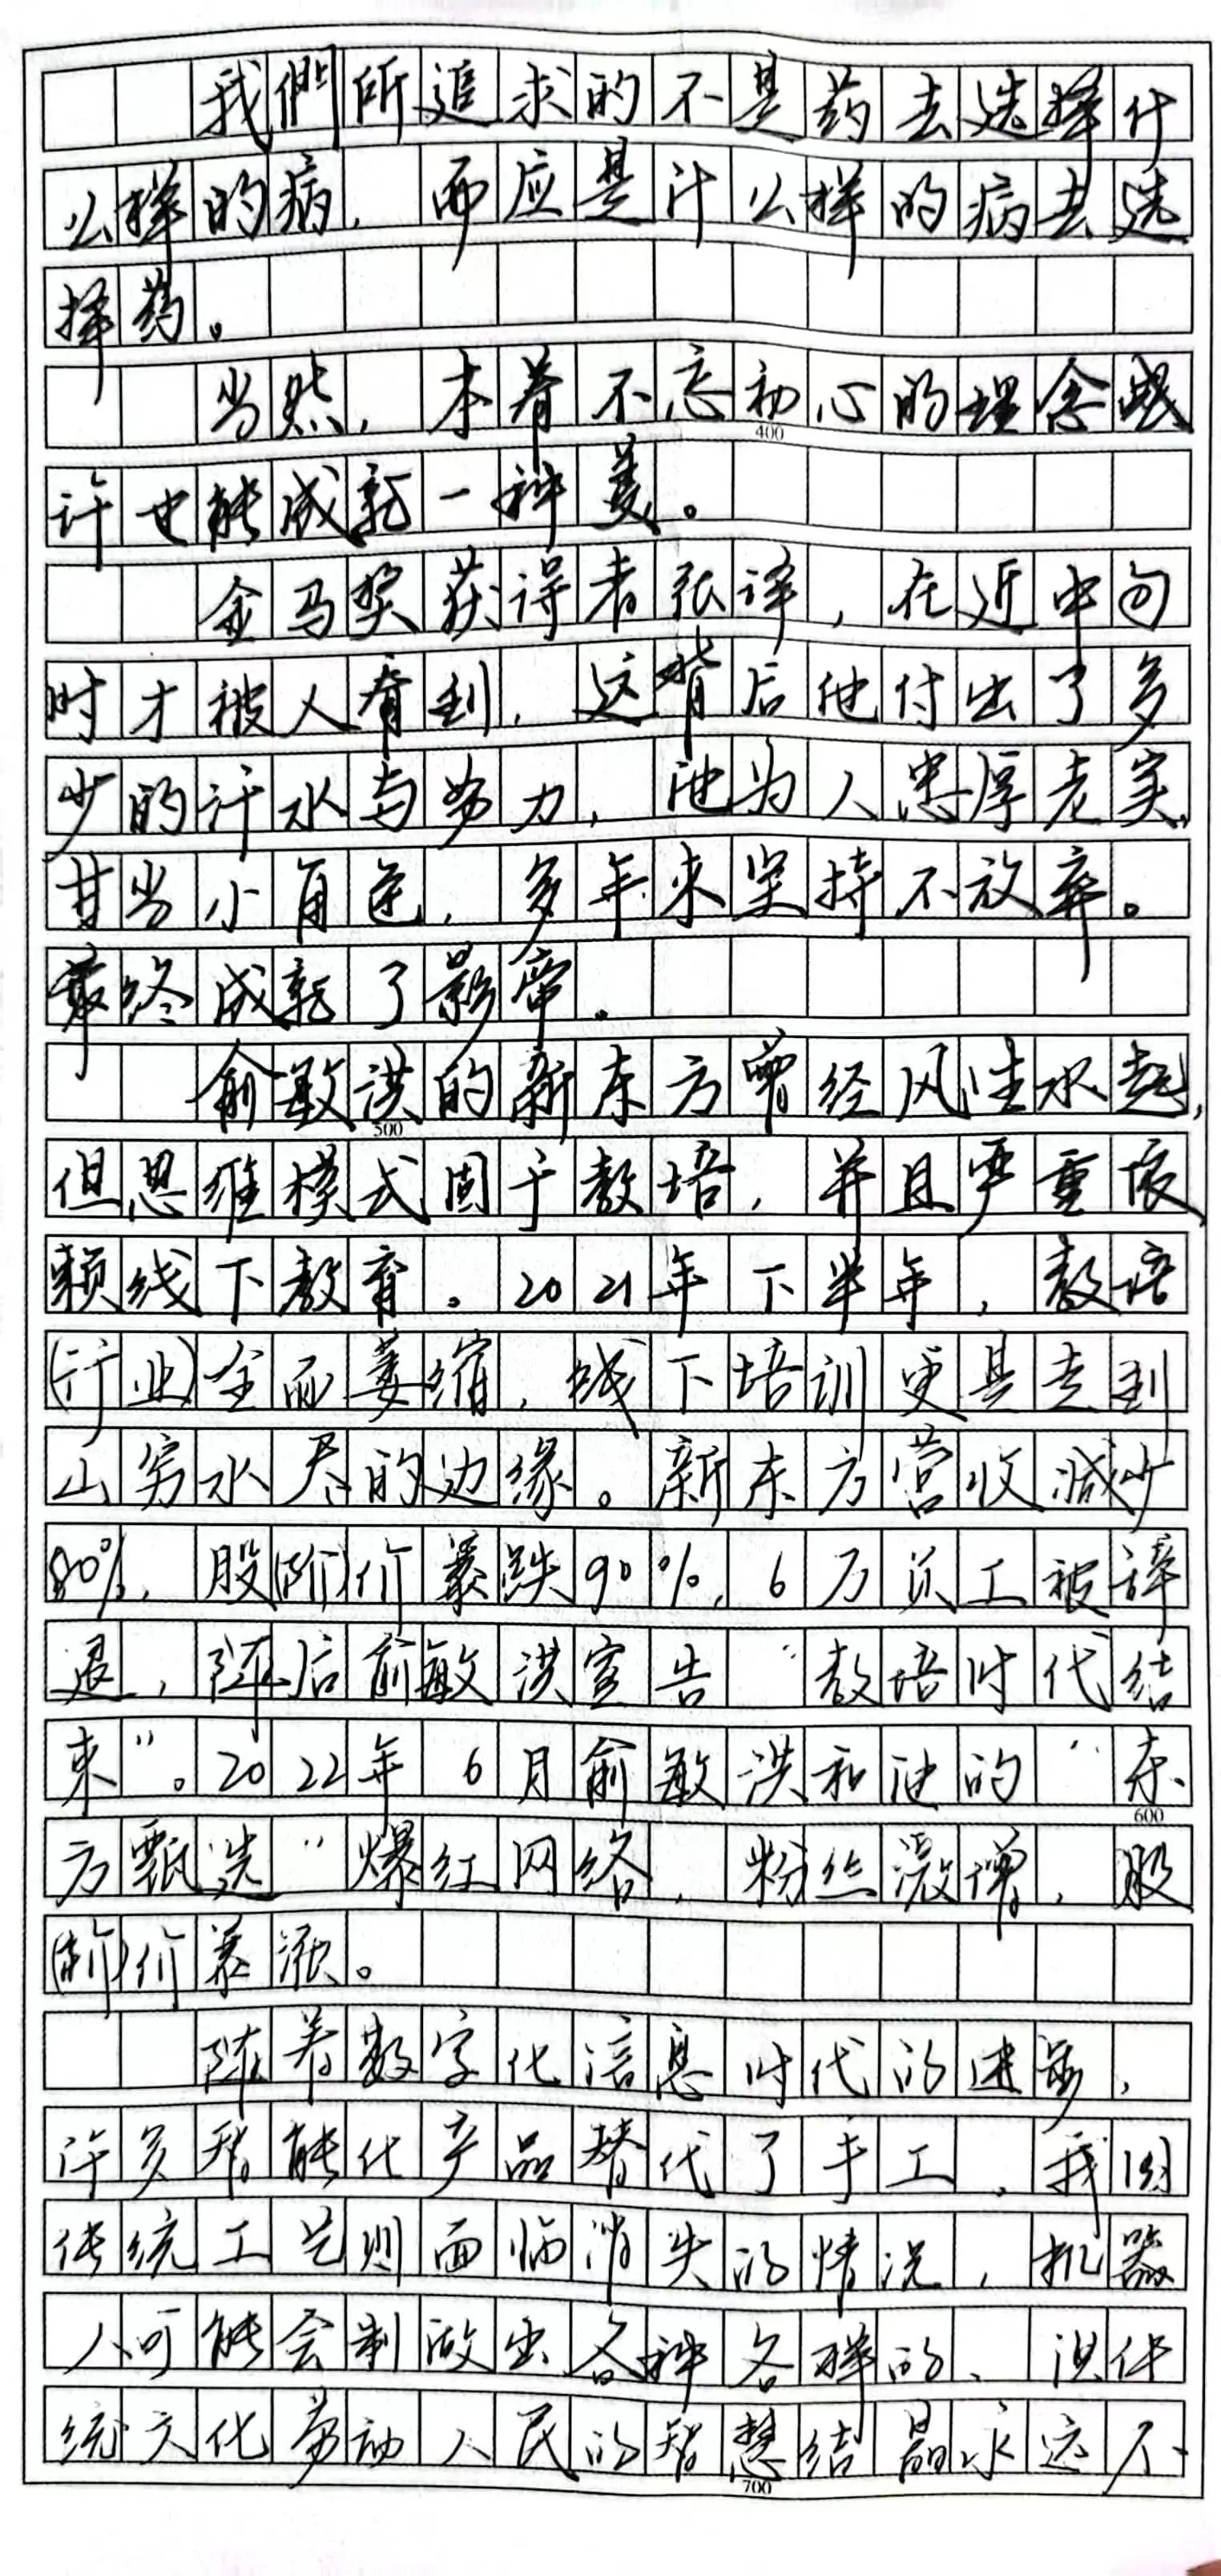 我們所追求的不是药去选择什
么样的病，而应是什么样的病去选
择药。
当然，本着不忘初心的理念或
400
许也能成就一种美。
金马奖获得者张译，在近中旬
时才被人看到，这背后他付出了多
少的汗水与努力，他为人忠厚老实，
甘当小角色，多年来坚持不放弃。
最终成就了影帝。
俞敏洪的新东方曾经风生水起，
500
但思维模式固于教培，并且严重依
赖线下教育。2021年下半年，教培
(行业)全面萎缩，线下培训更是走到
山穷水尽的边缘。新东方营收减少
80%，股(阶)价暴跌90%，6万员工被辞
退，随后俞敏洪宣告“教培时代结
束”。2022年6月俞敏洪和他的“东
600
方甄选”爆红网络，粉丝激增，股
(阶)价暴涨。
随着数字化信息时代的进步，
许多智能化产品替代了手工，我国
传统工艺则面临消失的情况，机器
人可能会制做出各种各样的、但传
统文化劳动人民的智慧结晶永远不
700